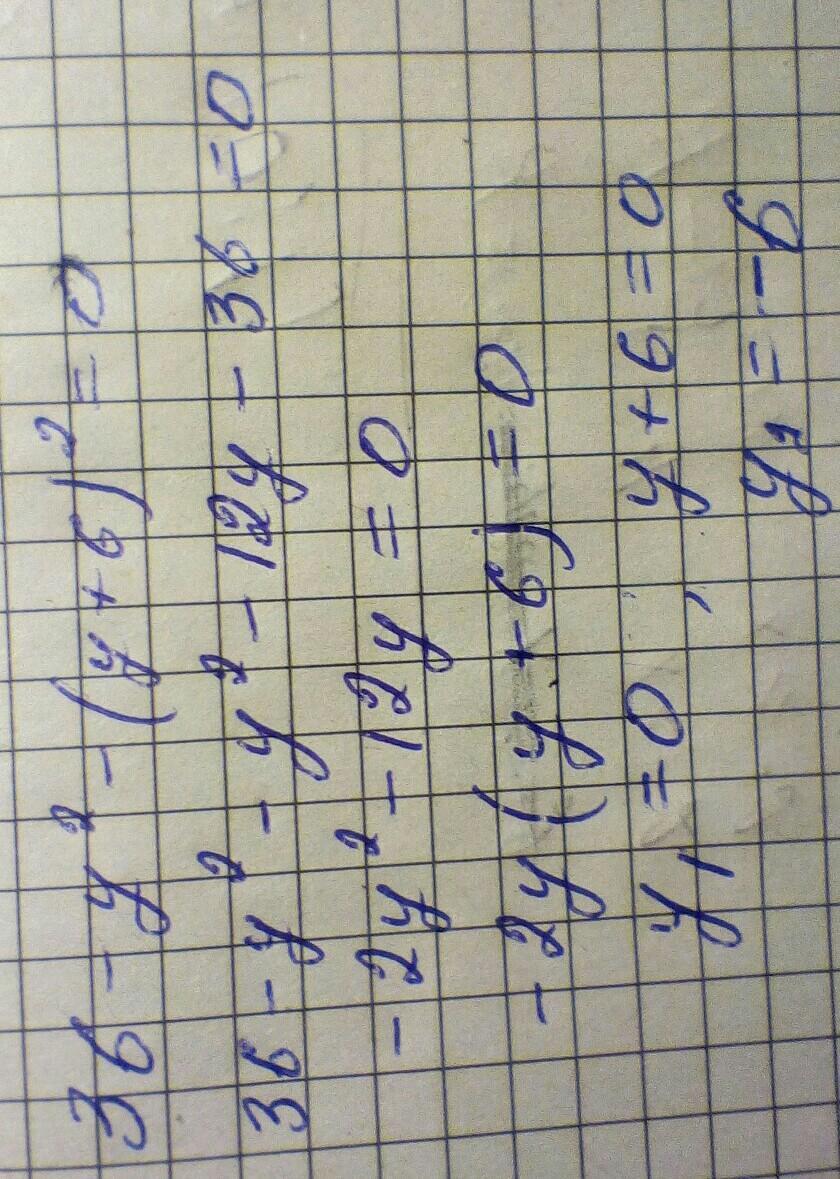 36 - y² - (y + 6)² = 0
36 - y² - y² - 12y - 36 = 0
- 2y² - 12y = 0
- 2y (y + 6) = 0
y₁ = 0 , y + 6 = 0
y₂ = - 6